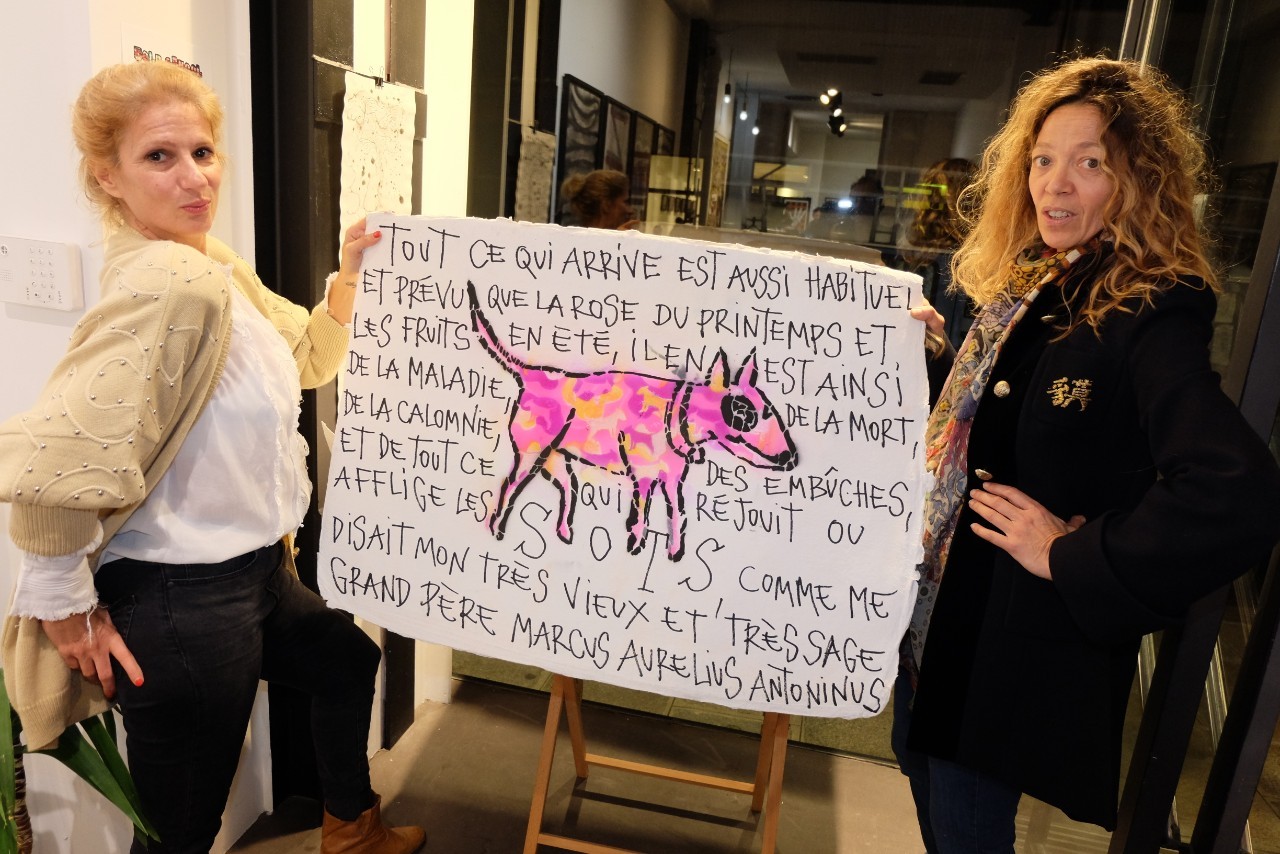 TOUT CE QUI ARRIVE EST AUSSI HABITUEL
ET PRÉVU QUE LA ROSE DU PRINTEMPS ET
LES FRUITS EN ÉTÉ, IL EN EST AINSI
DE LA MALADIE, DE LA MORT,
DE LA CALOMNIE, DES EMBÛCHES,
ET DE TOUT CE QUI RÉJOUIT OU
AFFLIGE LES SOTS COMME ME
DISAIT MON TRÈS VIEUX ET TRÈS SAGE
GRAND PÈRE MARCUS AURELIUS ANTONINUS